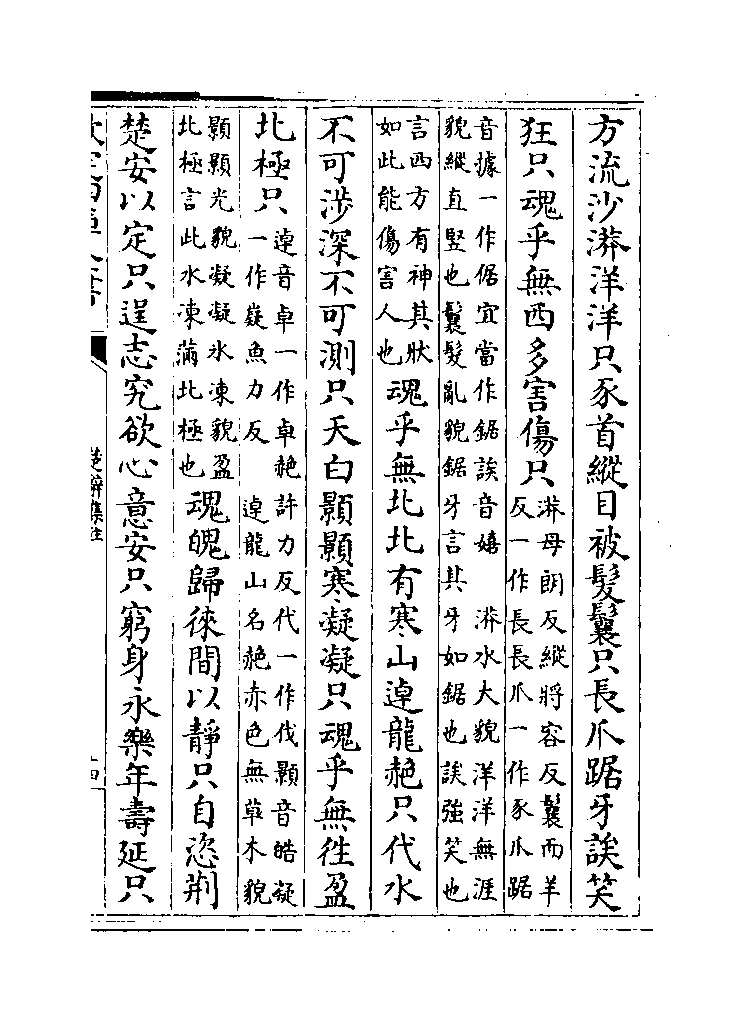 方流沙漭洋洋只豕首縱目被髮鬤只長爪踞牙誒笑
狂只魂乎無西多害傷只漭母朗反縱將容反鬤而羊
反一作長長爪一作豕爪踞
音據一作倨宜當作鋸誒音嬉　漭水大貌洋洋無涯
貌縱直竪也鬤髮亂貌鋸牙言其牙如鋸也誒強笑也
言西方有神其狀
如此能傷害人也魂乎無北北有寒山逴龍赩只代水
不可涉深不可測只天白顥顥寒凝凝只魂乎無徃盈
北極只逴音卓一作卓赩許力反代一作伐顥音皓凝
一作嶷魚力反　逴龍山名赩赤色無草木貌
顥顥光貌凝凝氷凍貌盈
北極言此水凍滿北極也魂魄歸徠閒以靜只自恣荆
楚安以定只逞志究欲心意安只窮身永樂年壽延只
楚辭集註